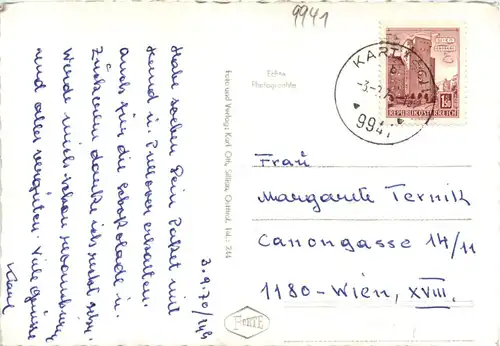 9941
Habe soeben Dein Paket mit
Hemd u. Pullover erhalten.
auch für die Schokolade u.
Zuckerln danke ich recht sehr.
Werde mich schon revanchieren
und alles vergüten. Viele Grüsse
Karl
3.9.70/14h
Foto und Verlag: Karl Ott, Sillian, Osttirol, Tel.: 244
Echte
Photographie
FORTE
KARTITSCH
b
9941
1.50
REPUBLIK ÖSTERREICH
Frau
Margarete Ternik
Canongasse 14/11
1180-Wien, XVIII.